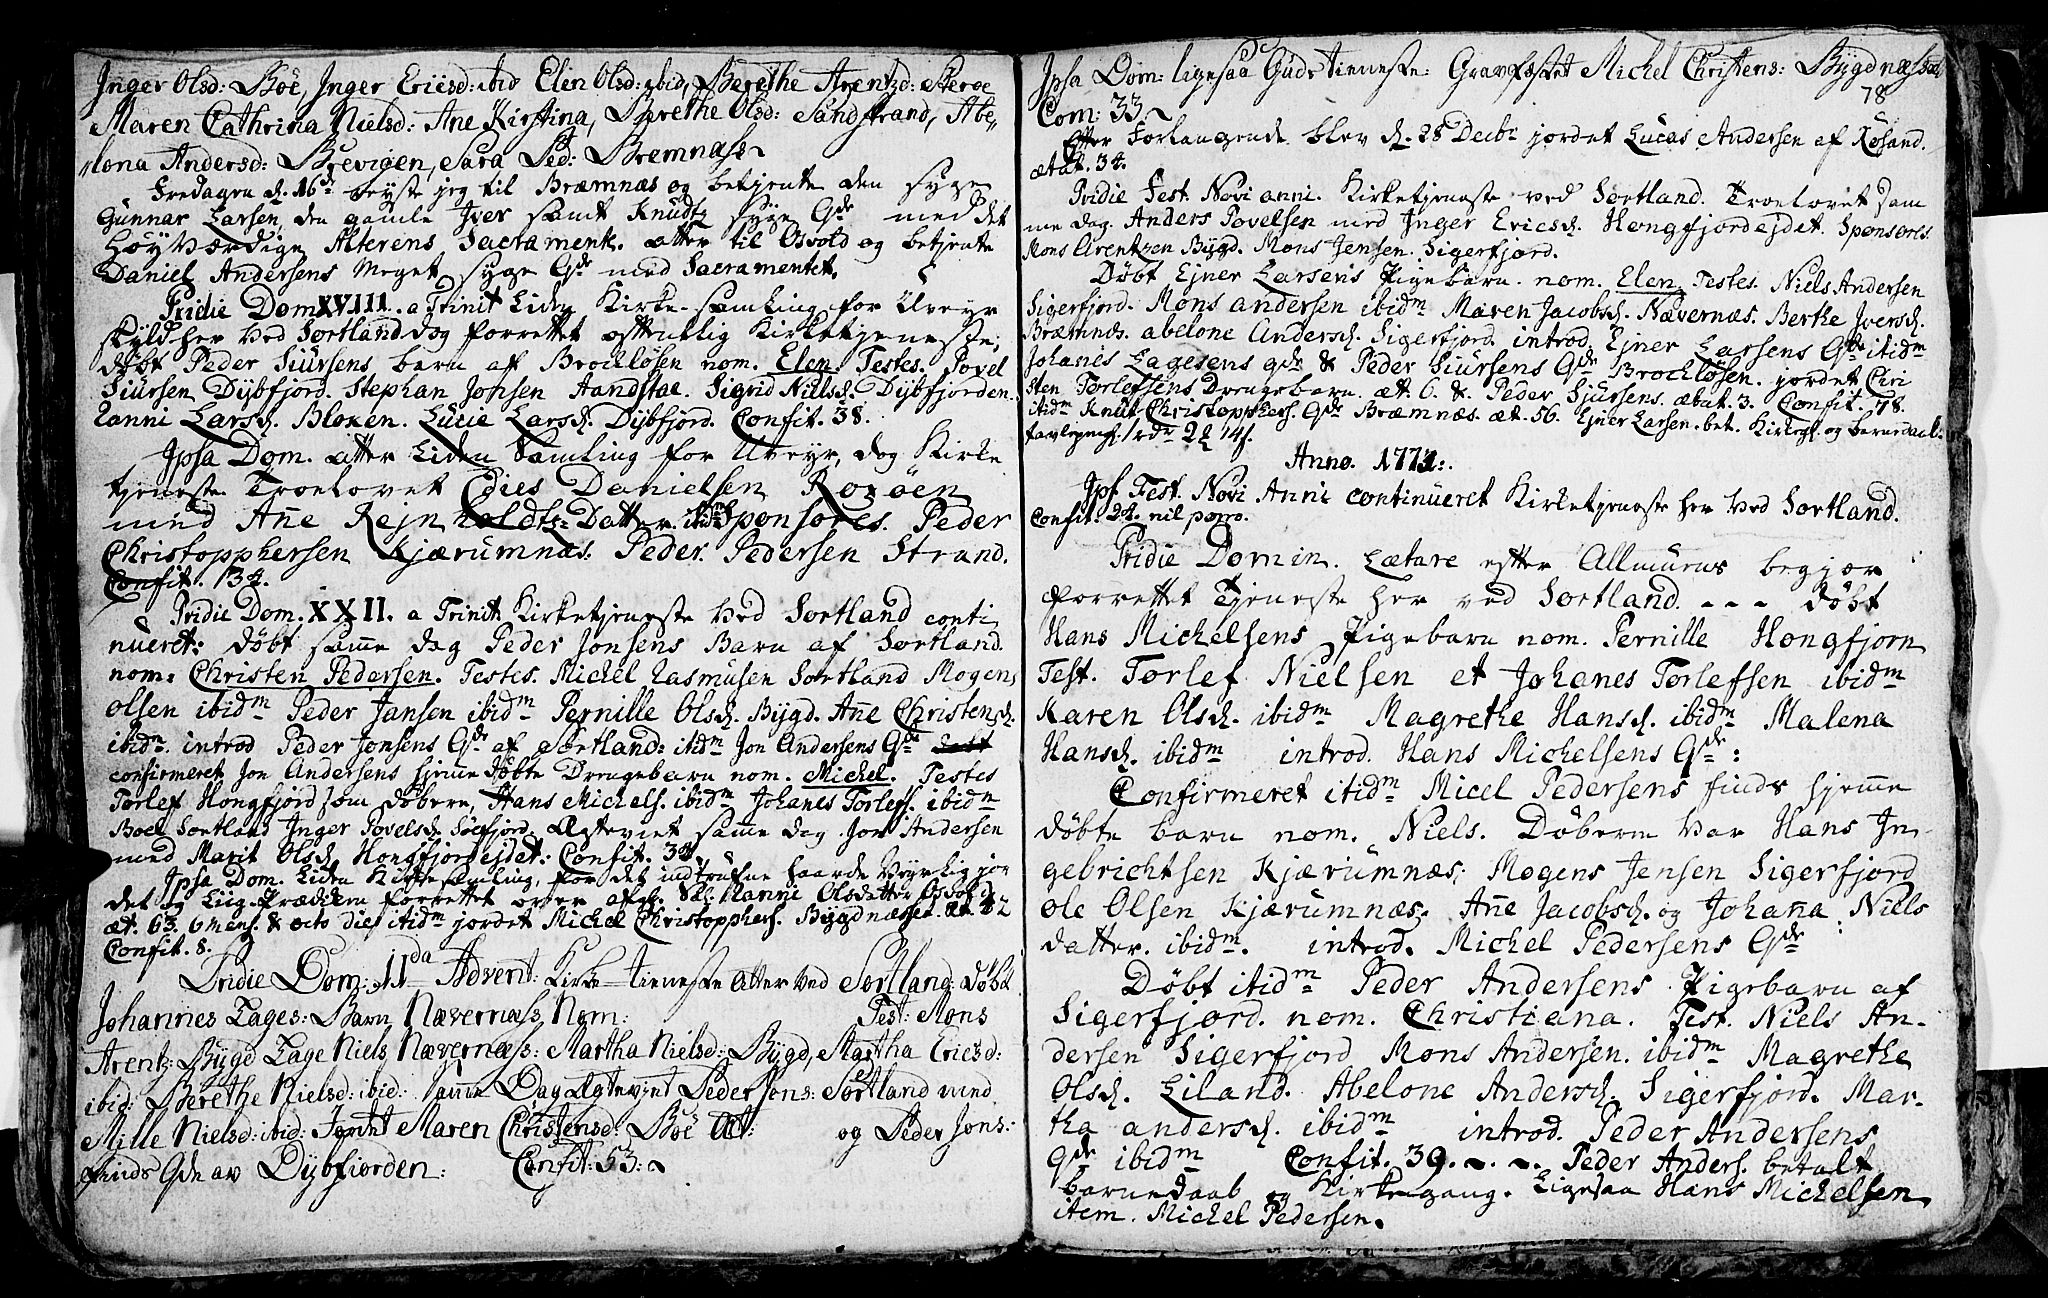 Inger Olsd: Böe, Inger Ericsd: ibid Elen Olsd: ibid, Berethe Arentzd: Steroe
Maren Cathrina Nielsd: Ane Kirstina, Berethe Olsd: Sandstrand, Abe„
„lona Andersd: Brevigen, Sara Ped: Bremnæss
Fredagen d. 16de reyste jeg til Bræmnæs og betjente den syge
Gunnar Larsen, den gamle Iver samt Knudtz syge Qde med det
Höyværdige Alterens Sacrament. atter til Osvold og betjente
Daniel Andersens Meget syge Qde med Sacramentet.
Pridie Dom XVIII. a Trinit Liden Kirke-samling for Uveyr
skyld her ved Sortland dog forrettet offentlig Kirketjeneste,
döbt Peder Siursens barn af Brochlösen nom. Elen. Testes. Povel
Siursen Dÿbfjord. Stephan Jonsen Aandstae. Sigrid Nielsd. Dybfjorden.
Lanni Larsd. Bloxen. Lucie Larsd. Dÿbfjord. Confit. 38.
Ipsa Dom. atter Liden Samling for Uveyr, dog Kirke
tjeneste. Troelovet Edies Danielsen Roxöen
med Ane Rejnholdts-Datter. ibidm Sponsores. Peder
Christopphersen Kjærumnæs. Peder Pedersen Strand.
Confit. 134.
Pridie Dom. XXII. a Trinit Kirketjeneste ved Sortland conti
nueret: döbt same dag Peder Jonsens Barn af Sortland.
nom: Christen Pedersen. Testes. Michel Rasmusen Sortland Mogens
Olsen ibidm Peder Jansen ibidm Pernille Olsd. Bÿgd. Ane Christensd.
ibidm. introd Peder Jonsens Qde af Sortland: itidm Jon Andersens Qde
confirmeret Jon Andersens hjeme döbte Drengebarn nom. Michel. Testes
Torlef Hongfjord som döberen, Hans Michels. ibidm Johanes Torlefs. ibidm
Boel Sortland Inger Povelsd. Söefjord. Ægteviet same dag Jon Andersen
med Marit Olsd. Hongfjordejdet. Confit. 34
Ipsa Dom. Liden Kirkesamling, for det indtrufne haarde Veyrlig jor
det og Liig-Prædiken forrettet over afgl. Sal: Hanni Olsdatter Osvold
æt. 63. 6 mens. & octo dies itidm jordet Michel Christopphers. Bygdnæsset. æt. 42
Confit. 8.
Pridie Dom: IIda Advent: Kirke-tieneste atter ved Sortland: döbt
Johannes Lages: Barn Nævernæss Nom: Test: Mons
Arentz: Bÿgd Lage Niels Nævernæss: Martha Nielsd: Bÿgd, Martha Ericsd:
ibid: Berethe Nielsd: ibid: Same Dag Ægteviet Peder Jons: Sortland med
Mille Nielsd: ibid: Jordet Maren Christensd: Böe Æt: og Peder Jons:
finds Qde av Dÿbfiorden: Confit: 53:
Ipsa Dom: ligesaa Guds tieneste: Gravfæstet Michel Christens: Bÿgdnæsset,
78
Com: 33
Efter Forlangende blev d. 28 Decbr jordet Lucas Andersen af Kosand.
ætat. 34.
Pridie Fest. Novi anni. Kirketjeneste ved Sortland. Troelovet sam
me dag. Anders Povelsen med Inger Ericsd. Hongfjordejdet. Sponsores.
Mons Arentzen Bÿgd. Mons Jensen. Sigerfjord.
Döbt Ejner Larsens Pigebarn. nom. Elen. Testes. Niels Andersen
Sigerfjord. Mons andersen ibidm Maren Jacobsd. Nævernæs. Berte Iversd.
Bræmnæs. abelone Andersd. Sigerfjord. introd. Ejner Larsens Qde itidm
Johanes Lagesens qde & Peder Siursens Qde Brochlösen. jordet Chri
sten Torlefsens Drengebarn. æt. 6. & Peder Sjursens. ætat. 3. Confit. 78.
itidm Knut Christopphers. Qde Bræmnæs. æt. 56. Ejner Larsen. bet. Kirkeg. og barnedaab.
Anno. 1771.
Ips. Fest. Novi Anni continueret Kirketjeneste her ved Sortland.
Confit. 24. nil porro.
Pridie Domin. Lætare efter Allmuens begjær
forrettet Tjeneste her ved Sortland. - - - döbt
Hans Michelsens Pigebarn nom. Pernille Hongfjorn
Test. Torlef Nielsen et Johanes Torlefsen ibidm
Karen Olsd. ibidm Magrethe Hansd. ibidm Malena
Hansd. ibidm introd. Hans Michelsens Qde:
Confirmeret itidm Micel Pedersens finds hjeme
döbte barn nom. Niels. Döberen var Hans In-
gebrichtsen Kjærumnæs; Mogens Jensen Sigerfjord
Ole Olsen Kjærumnæs. Ane Jacobsd. og Johana Niels
datter. ibidm. introd. Michel Pedersens Qde
Döbt itidm Peder Andersens Pigebarn af
Sigerfjord. nom. Christiana. Test. Niels An-
dersen Sigerfjord Mons Andersen. ibidm Magrethe
Olsd. Liland. Abelone Andersd. Sigerfjord. Mar-
tha andersd. ibidm introd. Peder Andersens
Qde ibidm Confit. 39. - . - . Peder Anders. betalt
barnedaab og Kirkegang. Ligesaa Hans Michelsen
item. Michel Pedersen.